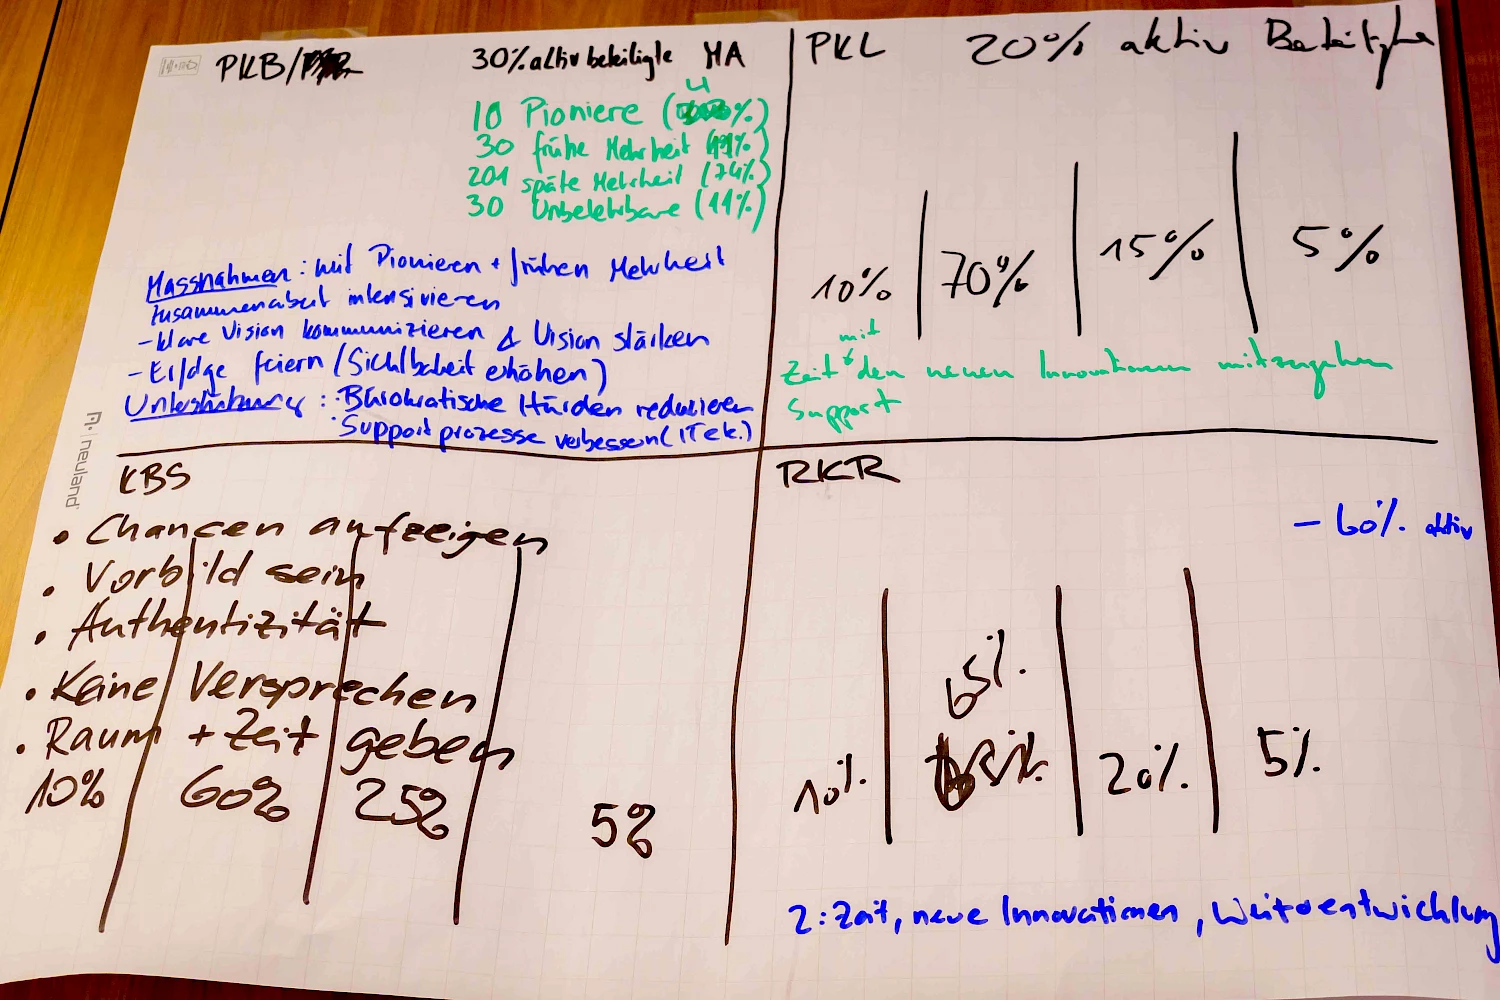 PKB/
30% aktiv beteiligte MA
10 Pioniere (4%)
30 frühe Mehrheit (11%)
201 späte Mehrheit (74%)
30 Unbelehrbare (11%)
Massnahmen: mit Pionieren + frühen Mehrheit
Zusammenarbeit intensivieren
- klare Vision kommunizieren & Vision stärken
- Erfolge feiern (Sichtbarkeit erhöhen)
Unterstützung: · Bürokratische Hürden reduzieren
· Supportprozesse verbessern (IT ek.)
PKL 20% aktiv Beteiligte
10% 70% 15% 5%
mit
Zeit den neuen Innovationen mitzugehen
Support
neuland
KBS
• Chancen aufzeigen
• Vorbild sein
• Authentizität
• Keine Versprechen
• Raum + Zeit geben
10% 60% 25% 5%
RKR
- 60% aktiv
65%
10% 20% 5%
2: Zeit, neue Innovationen, Weiterentwicklung